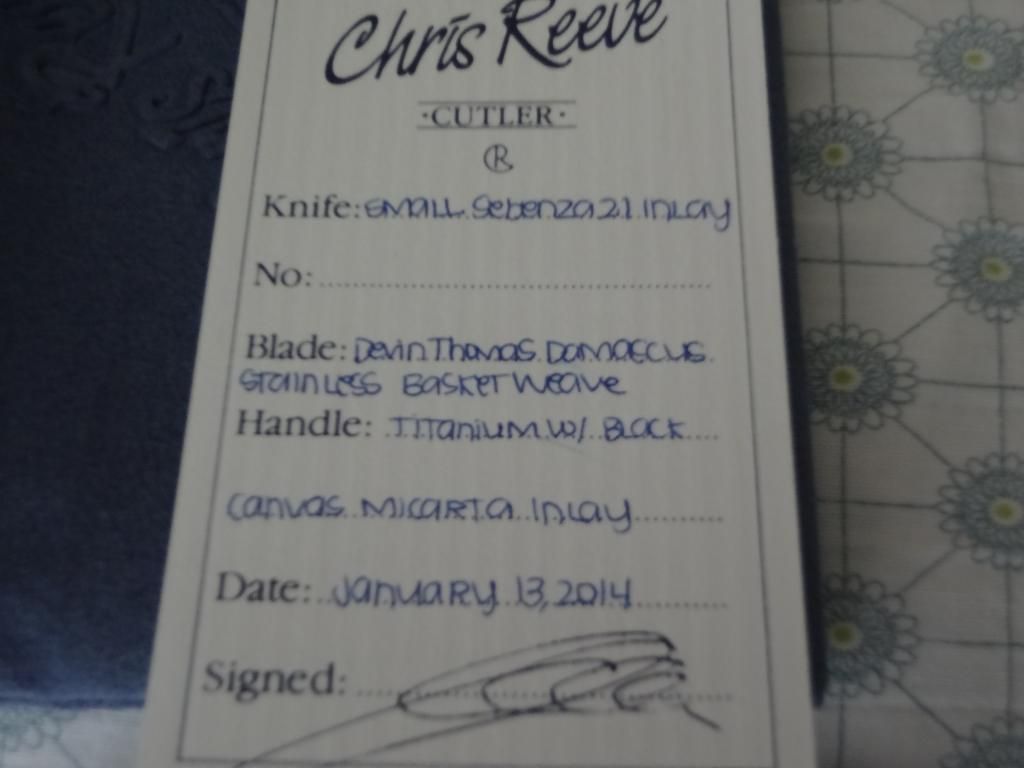 Chris Reeve
·CUTLER·
®
Knife: Small Sebenza 21 Inlay
No:
Blade: Devin Thomas Damascus
Stainless Basket Weave
Handle: Titanium w/ Black
Canvas Micarta Inlay
Date: January 13, 2014
Signed: